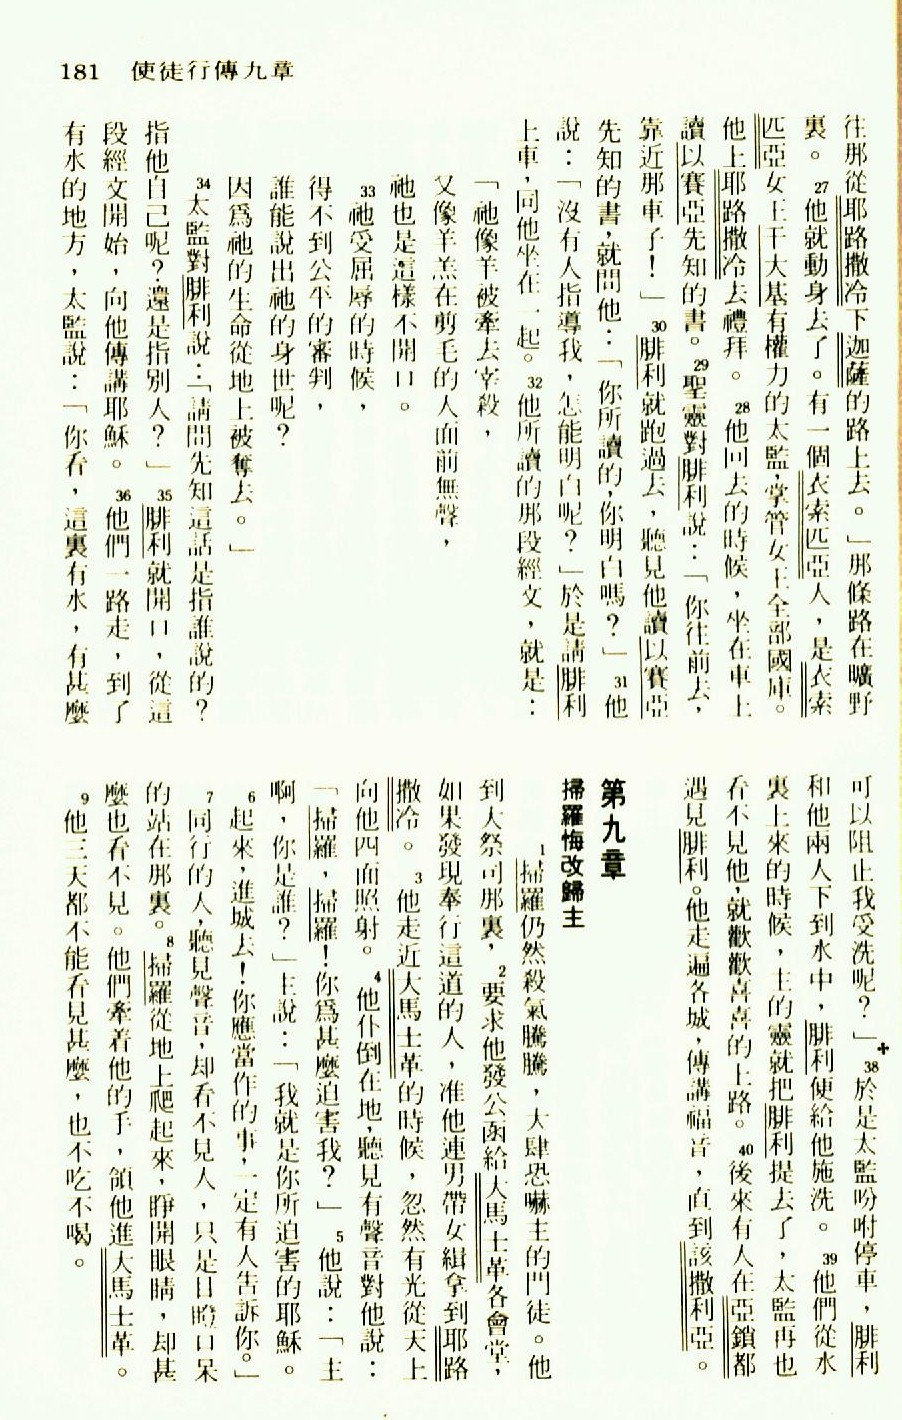 181 使徒行傳九章
往那從耶路撒冷下迦薩的路上去。」那條路在曠野
裏。27他就動身去了。有一個衣索匹亞人，是衣索
匹亞女王干大基有權力的太監，掌管女王全部國庫。
他上耶路撒冷去禮拜。28他回去的時候，坐在車上
讀以賽亞先知的書。29聖靈對腓利說：「你往前去，
靠近那車子！」30腓利就跑過去，聽見他讀以賽亞
先知的書，就問他：「你所讀的，你明白嗎？」31他
說：「沒有人指導我，怎能明白呢？」於是請腓利
上車，同他坐在一起。32他所讀的那段經文，就是：
「祂像羊被牽去宰殺，
又像羊羔在剪毛的人面前無聲，
祂也是這樣不開口。
33祂受屈辱的時候，
得不到公平的審判，
誰能說出祂的身世呢？
因爲祂的生命從地上被奪去。」
34太監對腓利說：「請問先知這話是指誰說的？
指他自己呢？還是指別人？」35腓利就開口，從這
段經文開始，向他傳講耶穌。36他們一路走，到了
有水的地方，太監說：「你看，這裏有水，有甚麼
可以阻止我受洗呢？」+38於是太監吩咐停車，腓利
和他兩人下到水中，腓利便給他施洗。39他們從水
裏上來的時候，主的靈就把腓利提去了，太監再也
看不見他，就歡歡喜喜的上路。40後來有人在亞鎖都
遇見腓利。他走遍各城，傳講福音，直到該撒利亞。
第九章
掃羅悔改歸主
1掃羅仍然殺氣騰騰，大肆恐嚇主的門徒。他
到大祭司那裏，2要求他發公函給大馬士革各會堂，
如果發現奉行這道的人，准他連男帶女緝拿到耶路
撒冷。3他走近大馬士革的時候，忽然有光從天上
向他四面照射。4他仆倒在地，聽見有聲音對他說：
「掃羅，掃羅！你爲甚麼迫害我？」5他說：「主
啊，你是誰？」主說：「我就是你所迫害的耶穌。
6起來，進城去！你應當作的事，一定有人告訴你。」
7同行的人，聽見聲音，却看不見人，只是目瞪口呆
的站在那裏。8掃羅從地上爬起來，睜開眼睛，却甚
麼也看不見。他們牽着他的手，領他進大馬士革。
9他三天都不能看見甚麼，也不吃不喝。